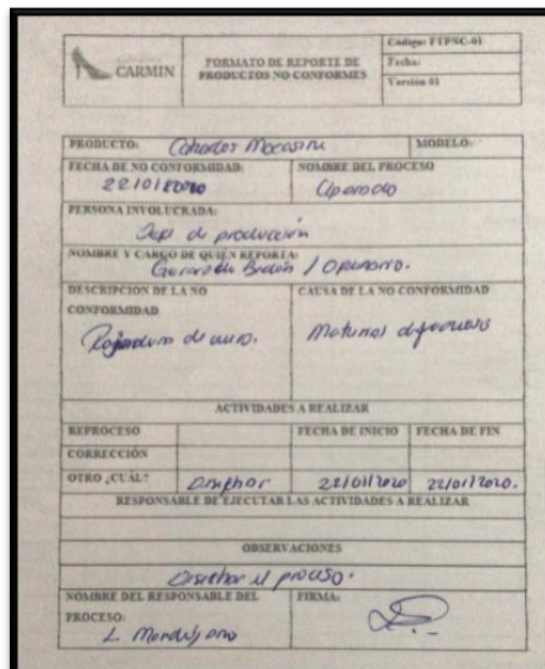 CARMIN
FORMATO DE REPORTE DE
PRODUCTOS NO CONFORMES
Código: FTPNC-01
Fecha:
Versión 01
PRODUCTO:
MODELO:
FECHA DE NO CONFORMIDAD:
22/01/2020
NOMBRE DEL PROCESO
Aparado
PERSONA INVOLUCRADA:
Jefe de producción
NOMBRE Y CARGO DE QUIÉN REPORTA:
/ Operario.
DESCRIPCION DE LA NO
CONFORMIDAD
de cuero.
CAUSA DE LA NO CONFORMIDAD
Material
ACTIVIDADES A REALIZAR
REPROCESO
FECHA DE INICIO
FECHA DE FIN
CORRECCIÓN
OTRO ¿CUÁL?
22/01/2020
22/01/2020.
RESPONSABLE DE EJECUTAR LAS ACTIVIDADES A REALIZAR
OBSERVACIONES
el proceso.
NOMBRE DEL RESPONSABLE DEL
PROCESO:
FIRMA: